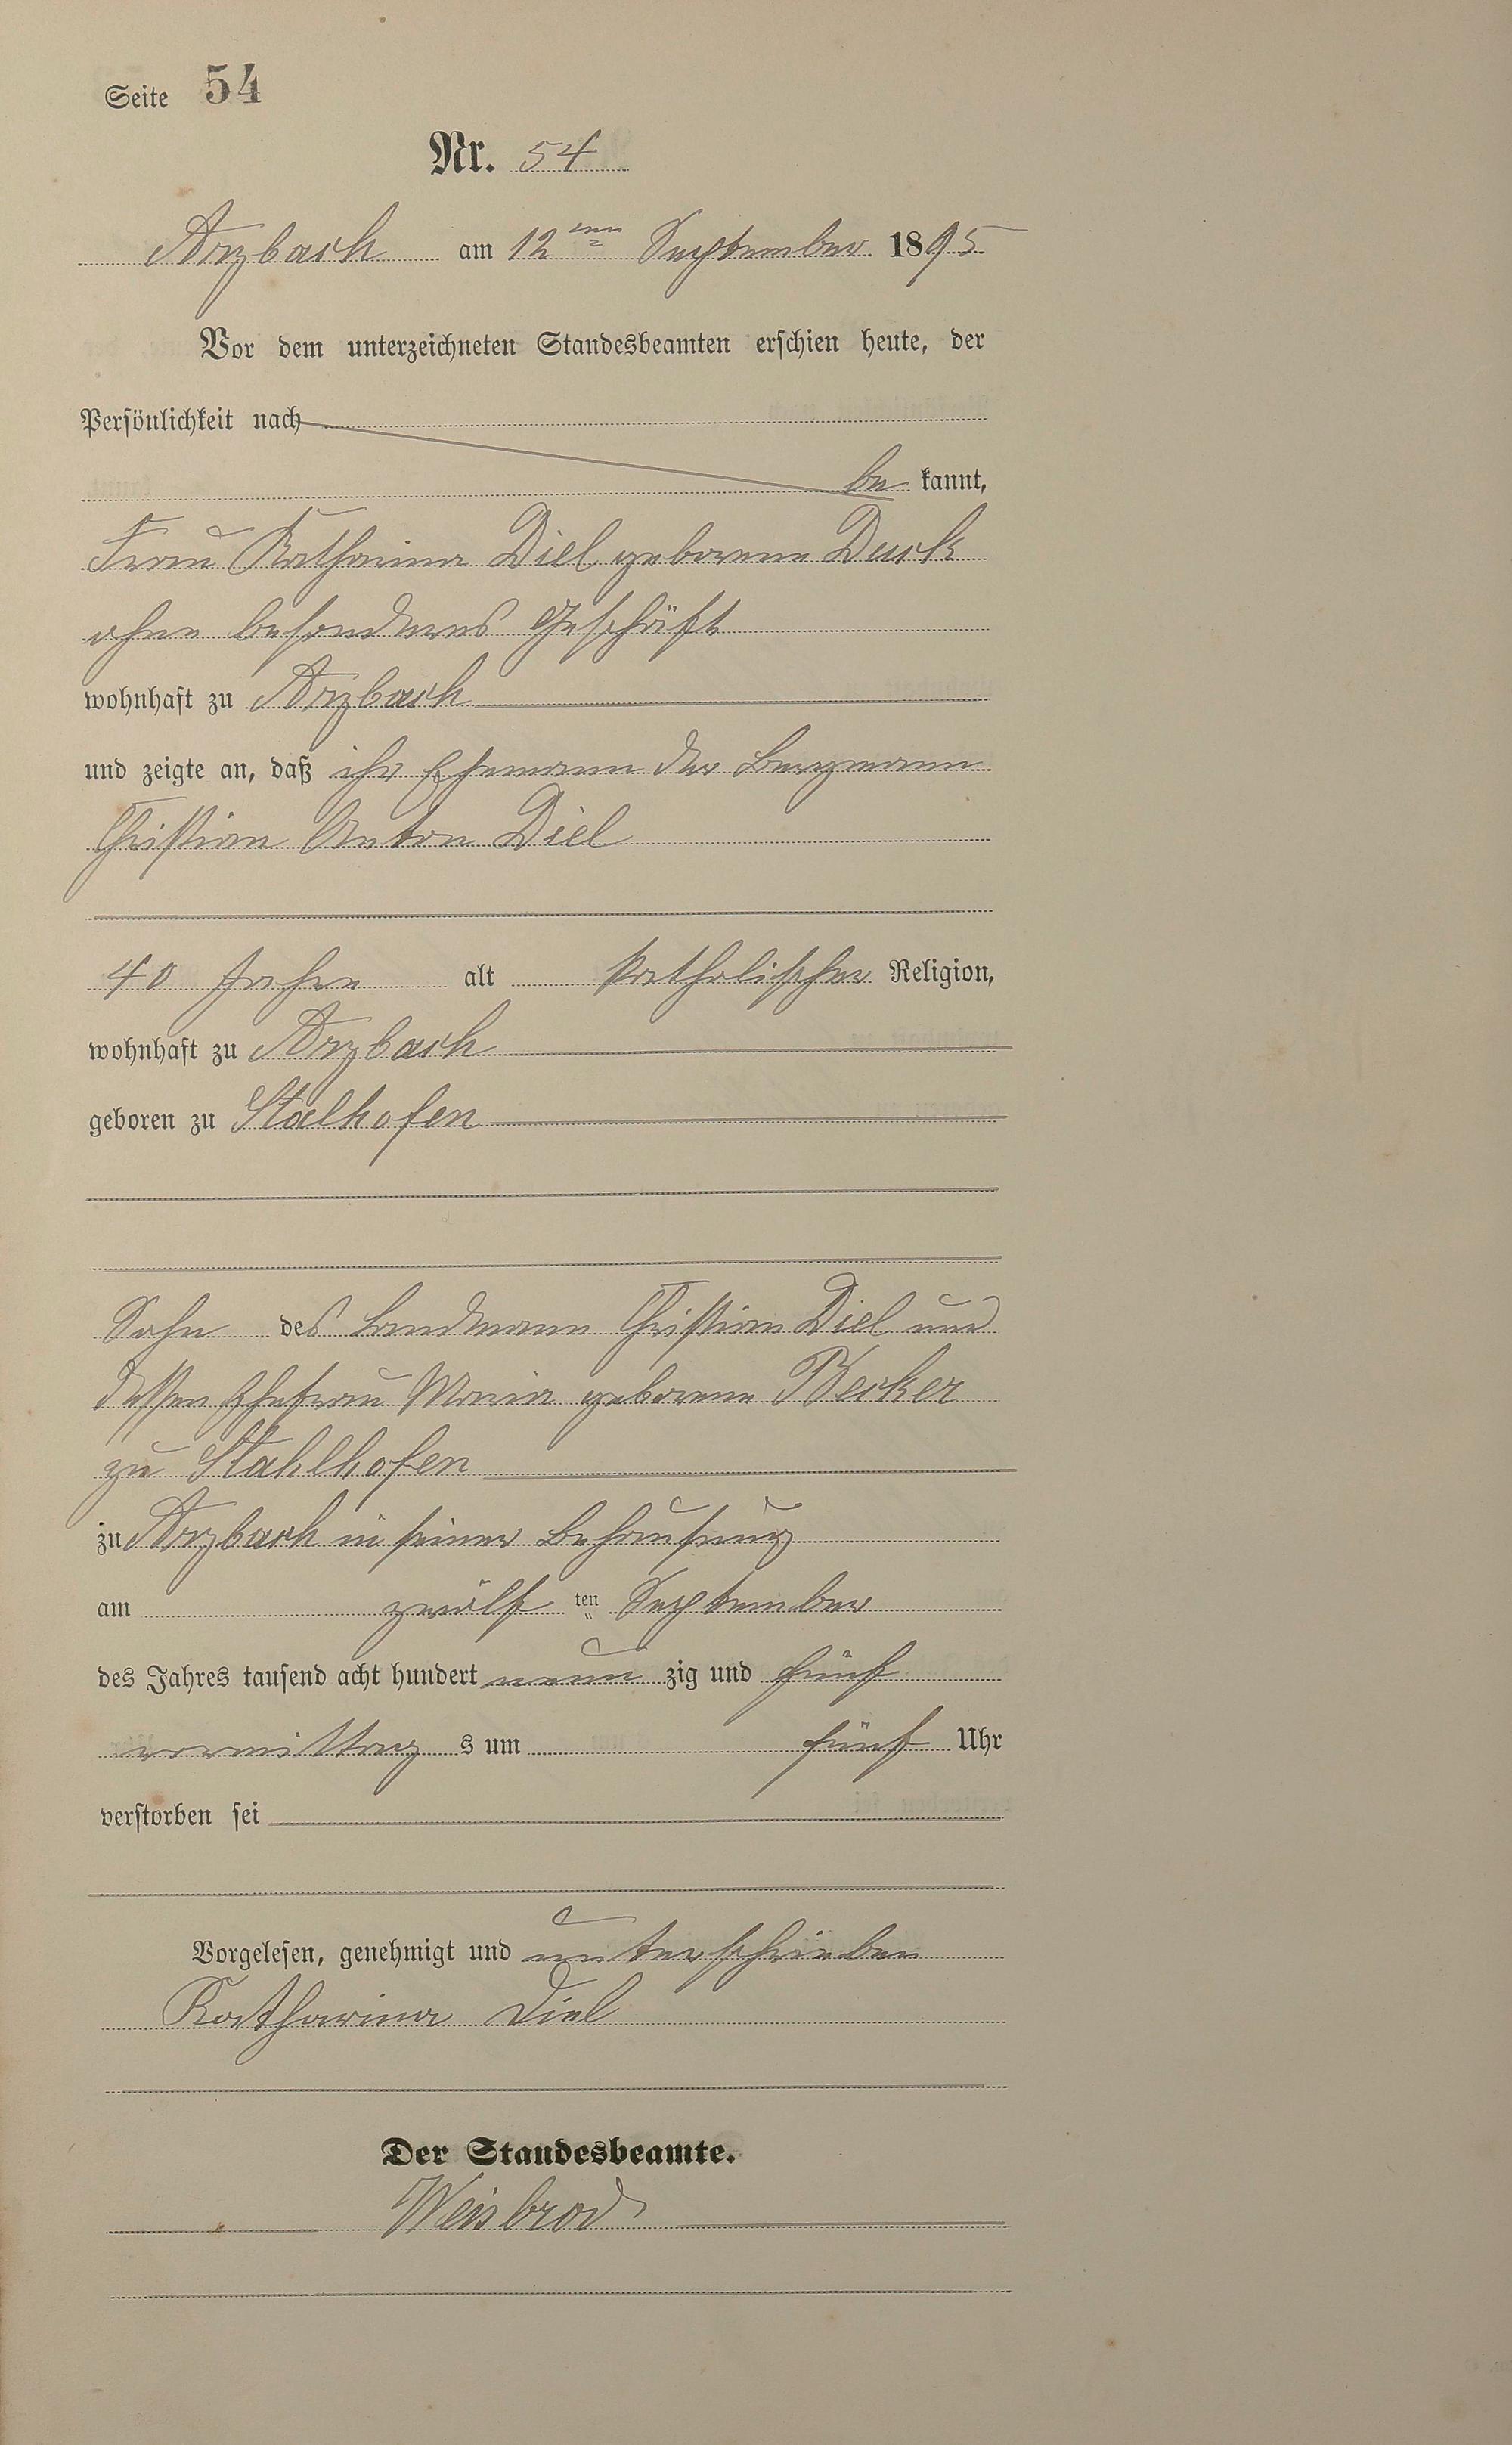 Seite 54
Nr. 54
Arzbach am 12ten September 1895
Vor dem unterzeichneten Standesbeamten erschien heute, der
Persönlichkeit nach
be kannt,
Frau Katharina Diel geborene Duck
ohne besonderes Geschäft
wohnhaft zu Arzbach
und zeigte an, daß ihr Ehemann der Bergmann
Christian Anton Diel
40 Jahre alt katholischer Religion,
wohnhaft zu Arzbach
geboren zu Stalhofen
Sohn des Landmann Christian Diel und
dessen Ehefrau Maria geborene Becker
zu Stahlhofen
zu Arzbach in seiner Behausung
am zwölf ten September
des Jahres tausend acht hundert neun zig und fünf
vormittag s um fünf Uhr
verstorben sei
Vorgelesen, genehmigt und unterschrieben
Katharina Diel
Der Standesbeamte.
Weisbrod